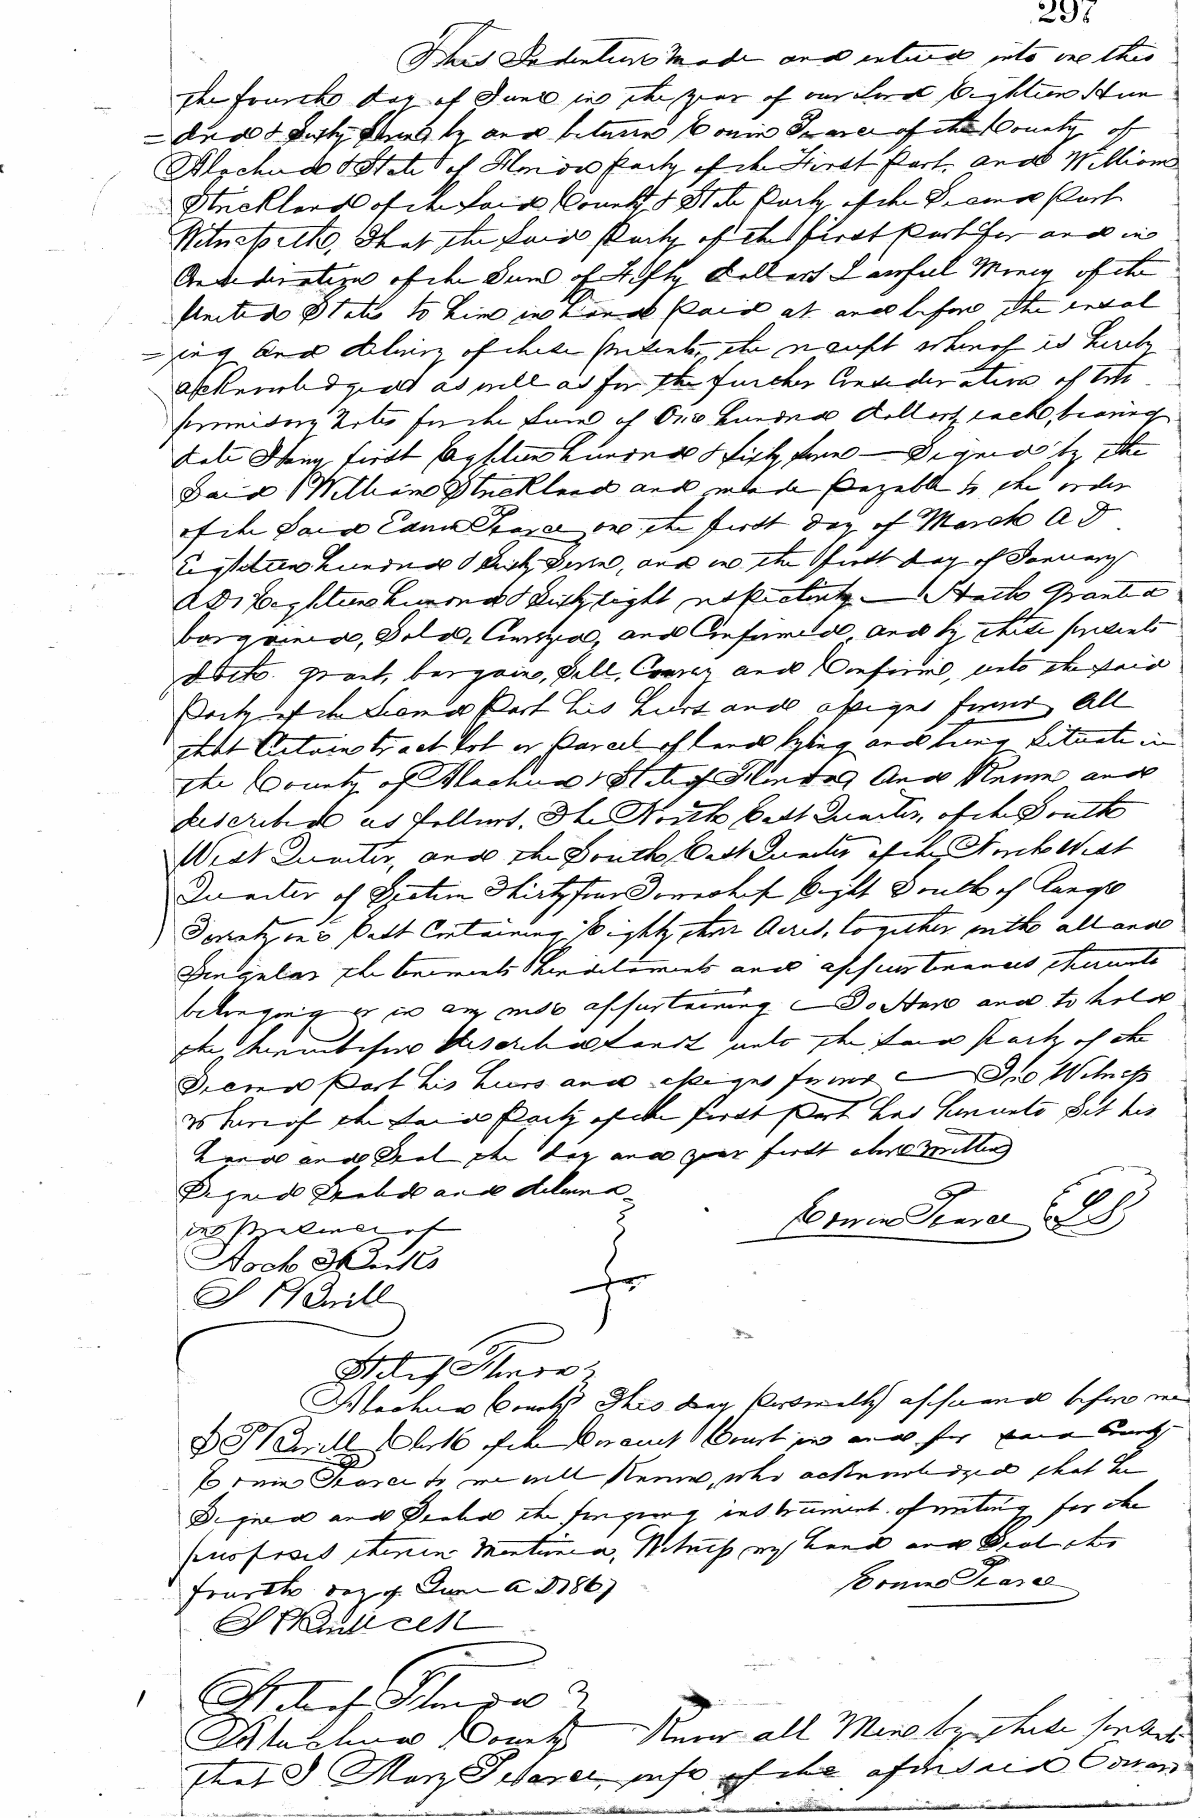 297
This Indenture Made and entered into on this
the fourth day of June in the year of our Lord Eighteen Hun
=dred & Sixty Seven by and between Edwin Pearce of the County of
Alachua & State of Florida Party of the First Part, and William
Strickland of the Said County & State Party of the Second Part
Witnesseth, That the Said Party of the first Part for and in
Consideration of the Sum of Fifty dollars Lawful Money of the
United States to him in hand Paid at and before the enseal
=ing and delivery of these presents, the receipt whereof is hereby
acknowledged as well as for the further Consideration of two
promisory Notes for the Sum of One hundred dollars each, bearing
date May first Eighteen hundred & Sixty Seven — Signed by the
Said William Strickland and made Payable to the order
of the Said Edwin Pearce on the first day of March A D
Eighteen hundred & Sixty Seven, and on the first day of January
A D Eighteen hundred & Sixty eight respectively — Hath Granted
bargained, Sold, Conveyed, and Confirmed, and by these presents
doth grant, bargain, Sell, Convey and Confirm, unto the said
Party of the Second Part his heirs and assigns forever All
that Certain tract lot or Parcel of land lying and being Situate in
the County of Alachua & State of Florida, And Known and
described as follows. The North East Quarter, of the South
West Quarter, and the South East Quarter of the North West
Quarter of Section Thirty four Township Eight South of Range
Twenty one East Containing Eighty three Acres, together with all and
Singular the tenements Hereditaments and appurtenances thereunto
belonging or in any wise appurtaining — To Have and to hold
the hereinbefore described Land unto the Said Party of the
Second Part his heirs and assigns forever — In Witness
whereof the Said Party of the first Part has hereunto Set his
hand and Seal the day and year first above written
Signed Sealed and delivered
in presence of
Edwin Pearce LS
State of Florida
Alachua County This day Personally appeared before me
Clerk of the Circuit Court in and for said County
Edwin Pearce to me well Known, who acknowledged that he
Signed and Sealed the foregoing instrument of writing for the
purposes therein Mentioned, Witness my hand and Seal this
fourth day of June A D 1867
Edwin Pearce
State of Florida
Alachua County Know all Men by these presents
that I Mary Pearce, wife of the aforesaid Edwin